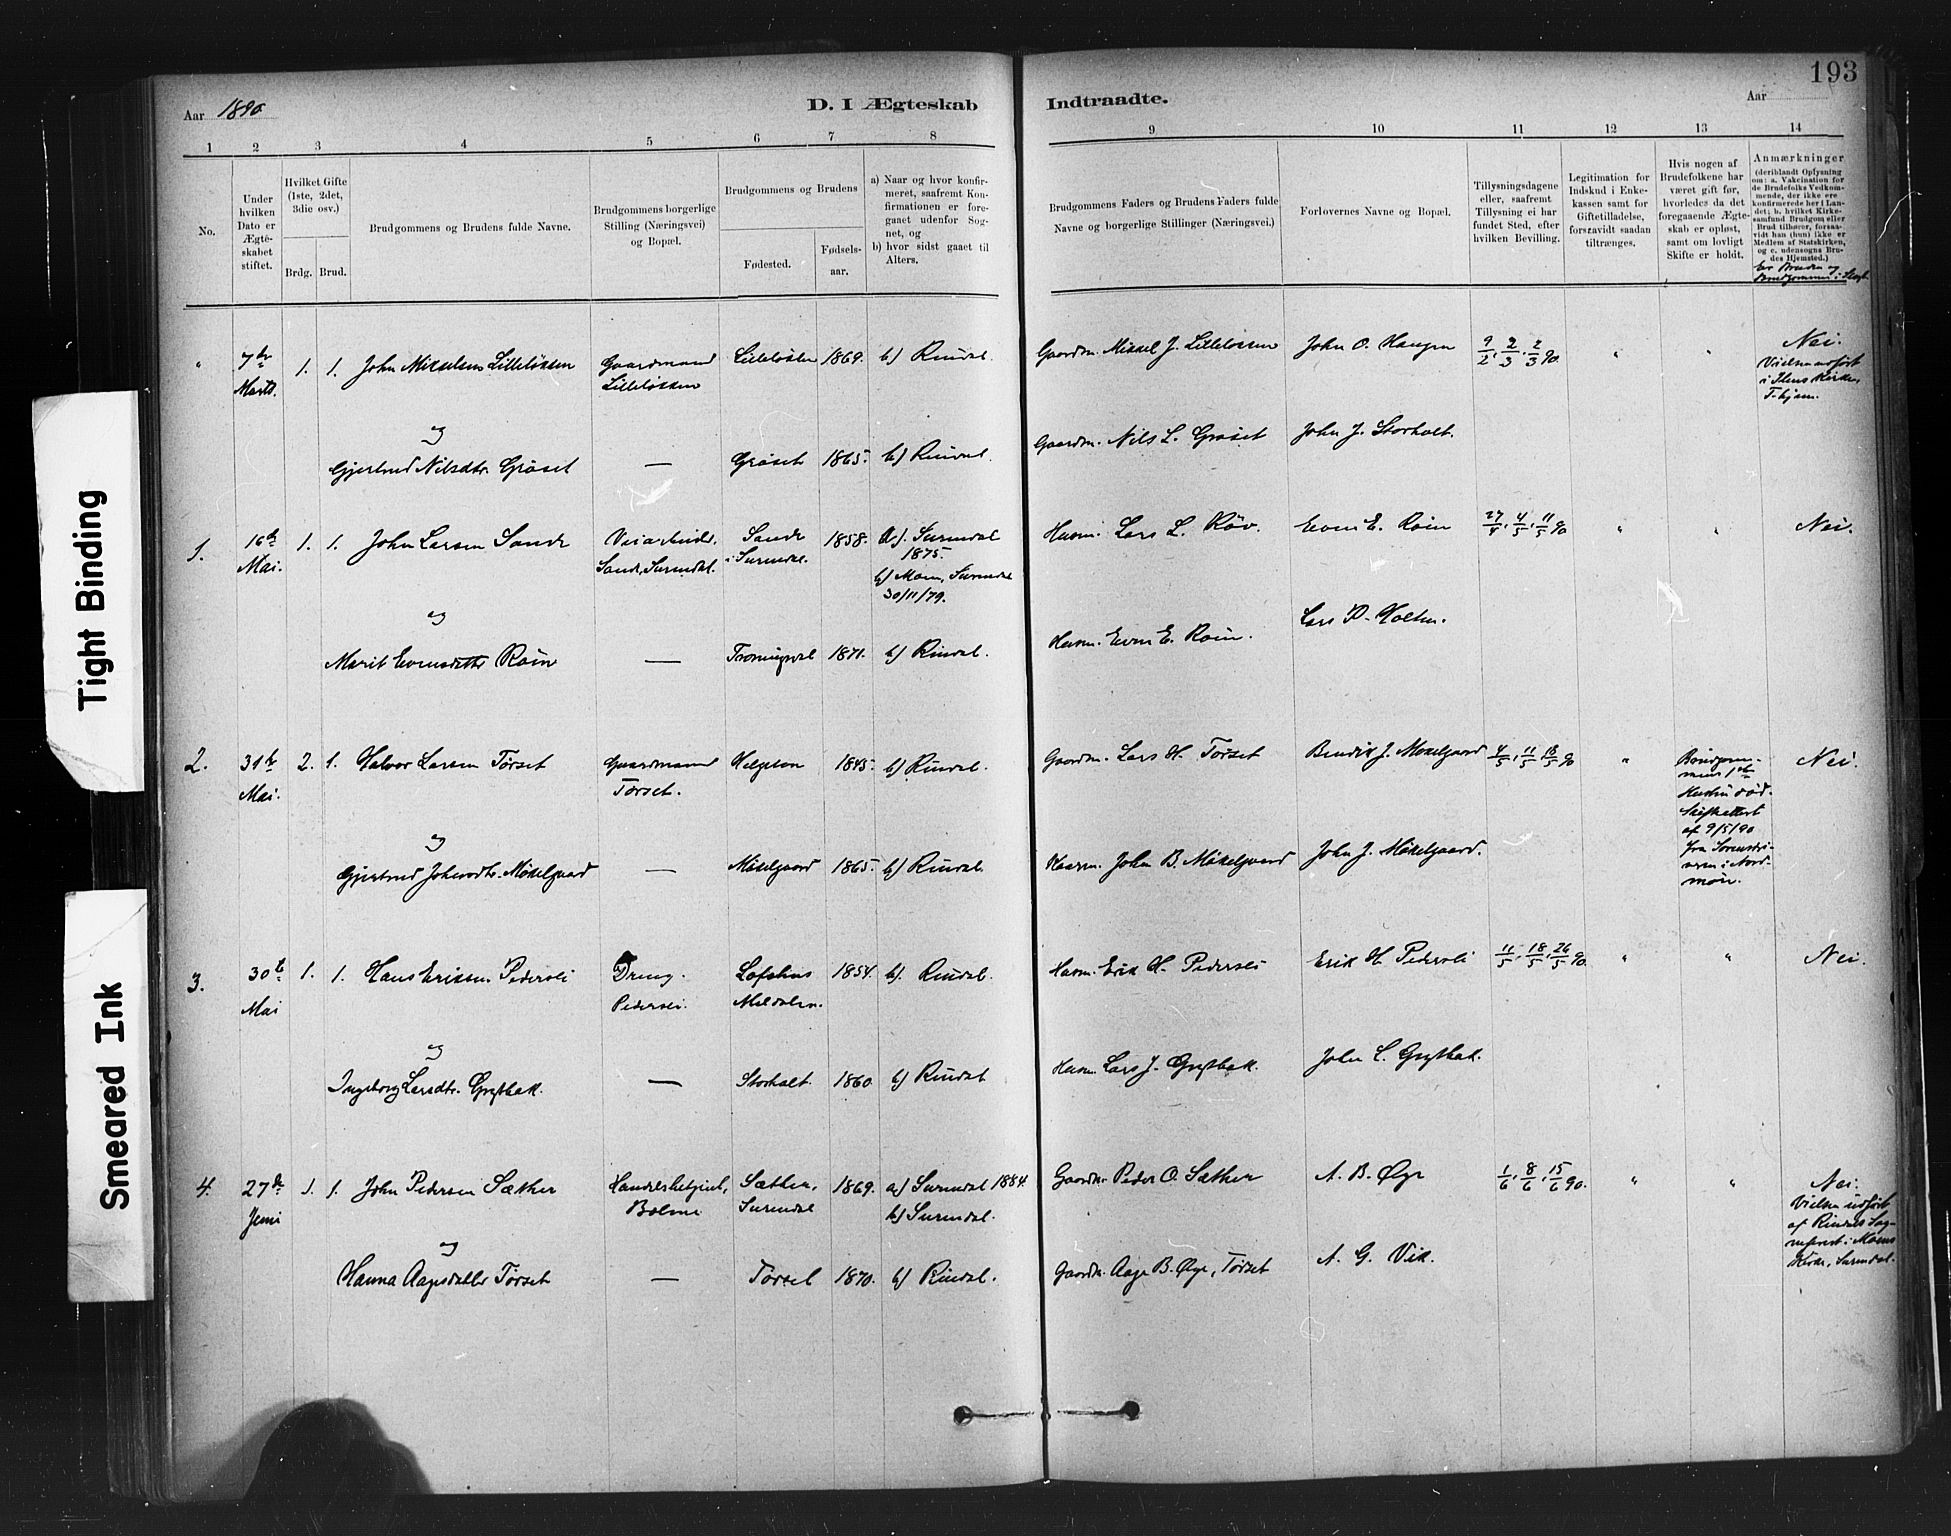 193
Aar 1890
D. I Ægteskab Indtraadte.
Aar
1 2 3 4 5 6 7 8 9 10 11 12 13 14
No.
Under hvilken Dato er Ægteskabet stiftet.
Hvilket Gifte (1ste, 2det, 3die osv.)
Brdg. Brud.
Brudgommens og Brudens fulde Navne.
Brudgommens borgerlige Stilling (Næringsvei) og Bopæl.
Brudgommens og Brudens
Fødested.
Fødselsaar.
a) Naar og hvor konfirmeret, saafremt Konfirmationen er foregaaet udenfor Sognet, og
b) hvor sidst gaaet til Alters.
Brudgommens Faders og Brudens Faders fulde Navne og borgerlige Stillinger (Næringsvei.)
Forlovernes Navne og Bopæl.
Tillysningsdagene eller, saafremt Tillysning ei har fundet Sted, efter hvilken Bevilling.
Legitimation for Indskud i Enkekassen samt for Giftetilladelse, forsaavidt saadan tiltrænges.
Hvis nogen af Brudefolkene har været gift før, hvorledes da det foregaaende Ægteskab er opløst, samt om lovligt Skifte er holdt.
Anmærkninger (deriblandt Opfysning om: a. Vakcination for de Brudefolks Vedkommende, der ikke ere konfirmerede her i Landet; b. hvilket Kirkesamfund Brudgom eller Brud tilhører, forsaavidt han (hun) ikke er Medlem af Statskirken, og c. udensogns Brudes Hjemsted.)
Er Bruden og Brudgommen i Slægt
" 7de Marts. 1. 1. John Mikkelsen Lilleløkken Gaardmand Lilleløkken Lilleløkken 1869. b) Rindal. Gaardm. Mikkel J. Lilleløkken John O. Haugen 9/2, 2/3, 2/3 90 " " Nei.
Vielsen udført i Ilens Kirke, T.hjem.
og
Gjertrud Nilsdtr. Grøset — Grøset 1865. b) Rindal. Gaardm. Nils L. Grøset John J. Storholt.
1. 16de Mai. 1. 1. John Larsen Sande Veiarbeid. Sande, Surendal. Sande i Surendal. 1858. a). Surendal 1875.
b) Moen, Surendal 30/11/79.
Husm. Lars L. Røv. Even E. Roin 27/4, 4/5, 11/5 90 " " Nei.
og
Marit Evensdatter Roin — Troningsdal 1871. b) Rindal. Husm. Even E. Roin. Lars P. Holten.
2. 31te Mai. 2. 1. Halvor Larsen Tørset Gaardmand Tørset. Helgeton 1845. b) Rindal. Gaardm. Lars H. Tørset Bendik J. Møkelgaard 4/5, 11/5, 18/5 90 " Brudgommens 1ste Hustru død. Skifteattest af 9/5/90 fra Sorenskriveren i Nordmøre. Nei.
og
Gjertrud Johnsdtr. Møkelgaard — Møkelgaard 1865. b) Rindal. Gaardm. John B. Møkelgaard John J. Møkelgaard.
3. 30te Mai 1. 1. Hans Eriksen Pedersli Dreng. Pedersli. Lofshus Meldalen. 1854. b) Rindal. Husm. Erik H. Pedersli Erik H. Pedersli 11/5, 18/5, 26/5 90 " " Nei.
og
Ingeborg Larsdtr. Grytbak. — Storholt. 1860. b) Rindal Husm. Lars J. Grytbak. John L. Grytbak.
4. 27de Juni 1. 1. John Pedersen Sæther Handelsbetjent, Bolme Sæther, Surendal 1869. a) Surendal 1884.
b) Surendal.
Gaardm. Peder O. Sæther A. B. Øye 1/6, 8/6, 15/6 90. " " Nei.
Vielsen udført af Rindals Sogneprest i Moens Kirke, Surendal.
og
Hanna Aagesdatter Tørset — Tørset 1870. b) Rindal. Gaardm. Aage B. Øye, Tørset A. G. Vik.
Tight Binding
Smeared Ink